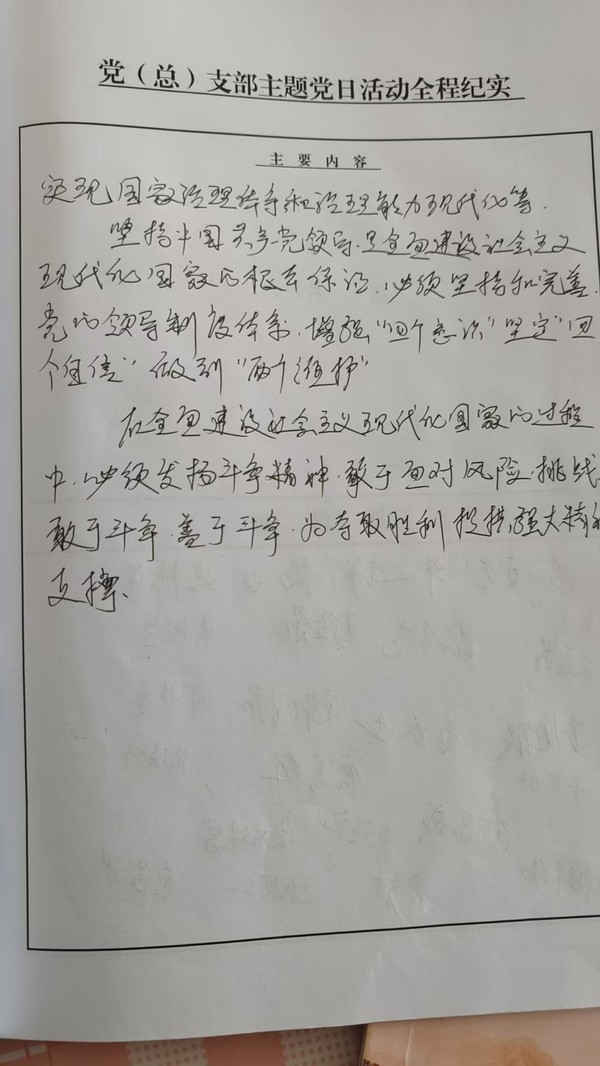 党（总）支部主题党日活动全程纪实
主要内容
实现国家治理体系和治理能力现代化等.
坚持中国共产党领导.是全面建设社会主义
现代化国家的根本保证.必须坚持和完善
党的领导制度体系.增强“四个意识”坚定“四
个自信”做到“两个维护”
在全面建设社会主义现代化国家的过程
中.必须发扬斗争精神.敢于面对风险.挑战
敢于斗争.善于斗争.为夺取胜利提供强大精神
支撑、